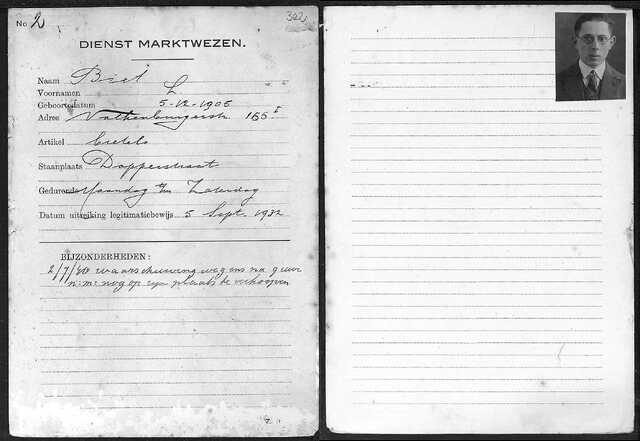 No 2 322
DIENST MARKTWEZEN.
Naam Biet
Voornamen L
Geboortedatum 5-12-1906
Adres Valkenburgerstr 165 I
Artikel
Staanplaats Dapperstraat
Gedurende Maandag t/m Zaterdag
Datum uitreiking legitimatiebewijs 5 Sept. 1932
BIJZONDERHEDEN:
2/7/40 waarschuwing wegens na 9 uur
n.m. nog op zijn plaats te verkoopen